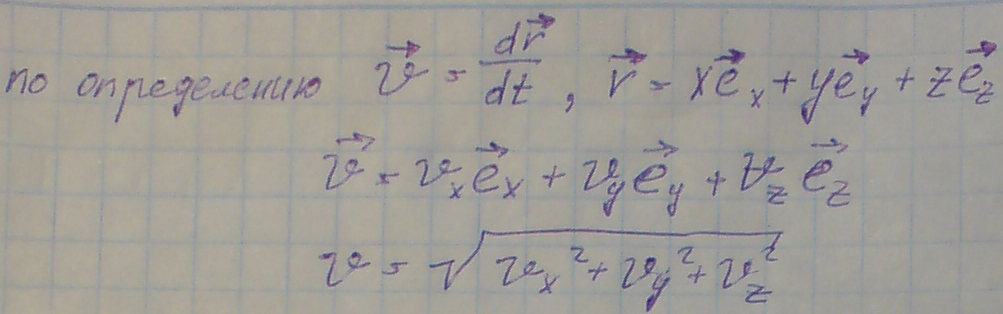 по определению $\vec{v} = \frac{d\vec{r}}{dt}$, $\vec{r} = x\vec{e}_x + y\vec{e}_y + z\vec{e}_z$
$\vec{v} = v_x\vec{e}_x + v_y\vec{e}_y + v_z\vec{e}_z$
$v = \sqrt{v_x^2 + v_y^2 + v_z^2}$